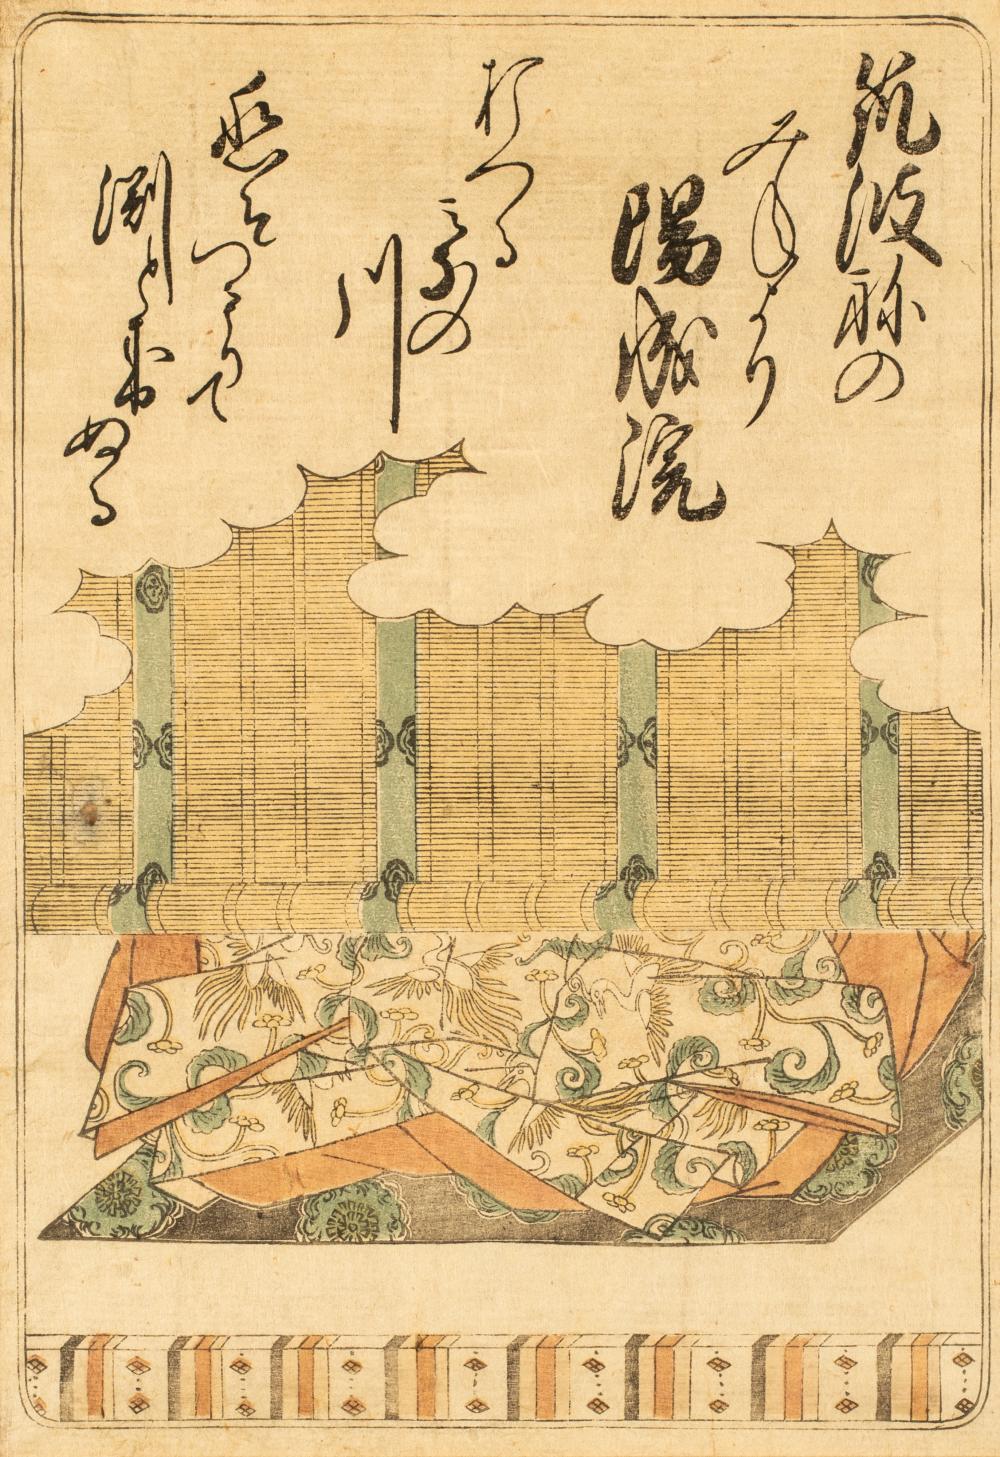 筑波祢の
みねより
陽成院
打つる
みなの
川
恋そ
つもりて
渕と成
ぬる